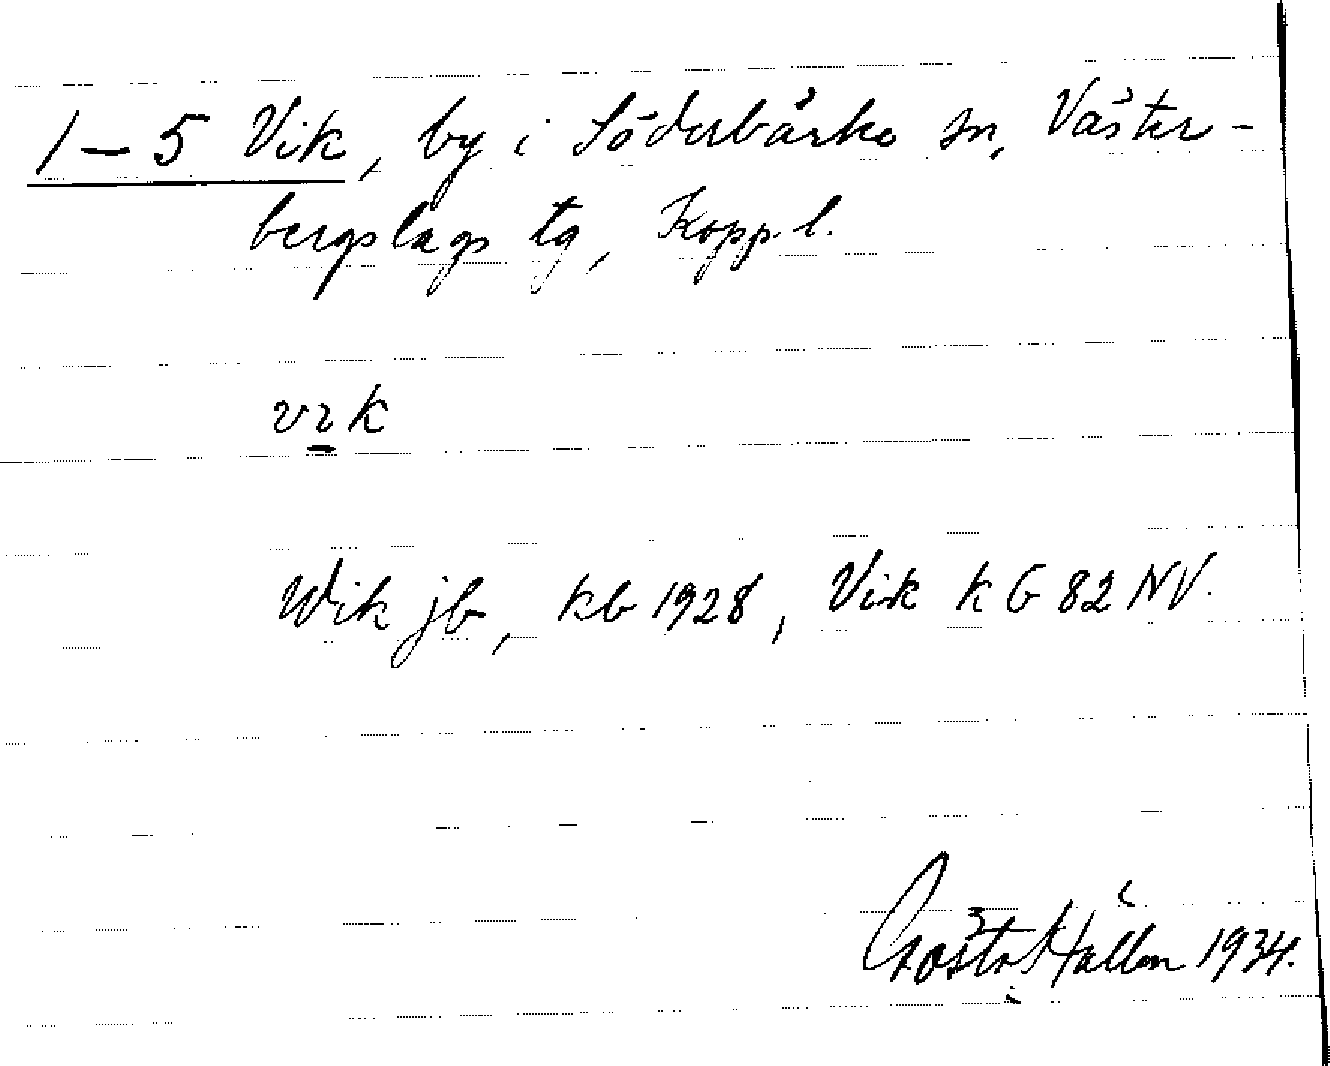 1–5 Vik, by i Söderbärke sn, Väster-
bergslags tg, Kopp.l.
Wik jb, kb 1928, Vik k G 82 NV.
Gösta Hallén 1934.